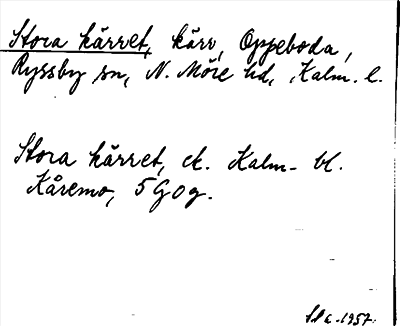 Stora kärret, kärr, Oppeboda,
Ryssby sn, N. Möre hd, Kalm. l.
Stora kärret, ek. Kalm. bl.
Kåremo, 5G0g.
1957.